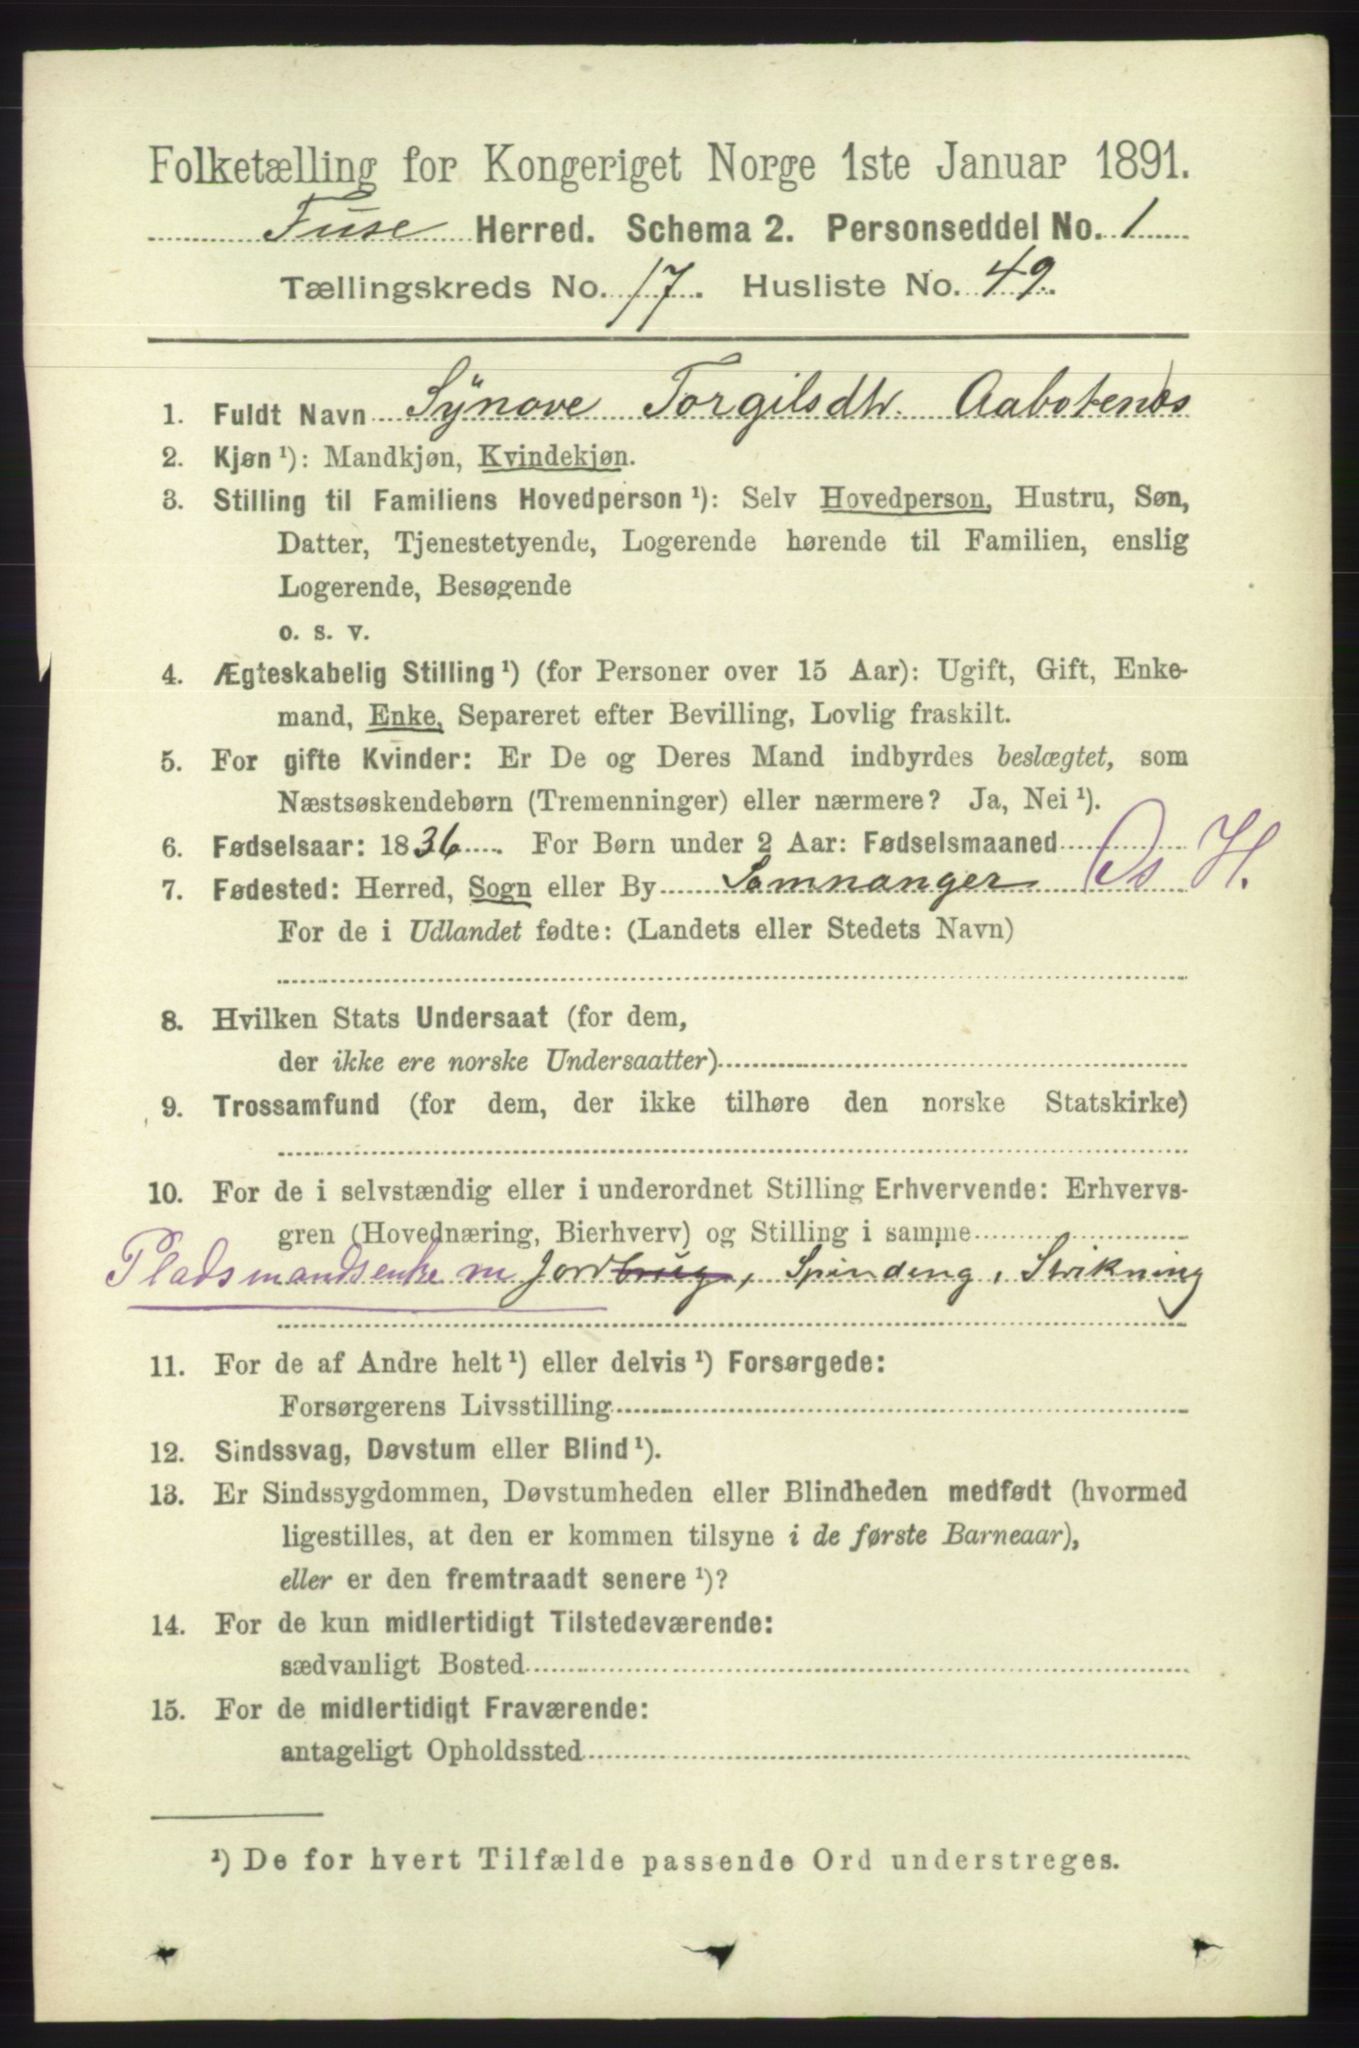 Folketælling for Kongeriget Norge 1ste Januar 1891.
Fuse Herred. Schema 2. Personseddel No. 1
Tællingskreds No. 17. Husliste No. 49.
1. Fuldt Navn Synove Torgilsdtr. Aabotenæs
2. Kjøn ¹): Mandkjøn, Kvindekjøn.
3. Stilling til Familiens Hovedperson ¹): Selv Hovedperson, Hustru, Søn,
Datter, Tjenestetyende, Logerende hørende til Familien, enslig
Logerende, Besøgende
o. s. v.
4. Ægteskabelig Stilling ¹) (for Personer over 15 Aar): Ugift, Gift, Enke-
mand, Enke, Separeret efter Bevilling, Lovlig fraskilt.
5. For gifte Kvinder: Er De og Deres Mand indbyrdes beslægtet, som
Næstsøskendebørn (Tremenninger) eller nærmere? Ja, Nei ¹).
6. Fødselsaar: 1836. For Børn under 2 Aar: Fødselsmaaned
7. Fødested: Herred, Sogn eller By Samnanger Os H.
For de i Udlandet fødte: (Landets eller Stedets Navn)
8. Hvilken Stats Undersaat (for dem,
der ikke ere norske Undersaatter)
9. Trossamfund (for dem, der ikke tilhøre den norske Statskirke)
10. For de i selvstændig eller i underordnet Stilling Erhvervende: Erhvervs-
gren (Hovednæring, Bierhverv) og Stilling i samme
Pladsmandsenke m Jordbrug, Spinding, Strikning
11. For de af Andre helt ¹) eller delvis ¹) Forsørgede:
Forsørgerens Livsstilling
12. Sindssvag, Døvstum eller Blind ¹).
13. Er Sindssygdommen, Døvstumheden eller Blindheden medfødt (hvormed
ligestilles, at den er kommen tilsyne i de første Barneaar),
eller er den fremtraadt senere ¹)?
14. For de kun midlertidigt Tilstedeværende:
sædvanligt Bosted
15. For de midlertidigt Fraværende:
antageligt Opholdssted
¹) De for hvert Tilfælde passende Ord understreges.